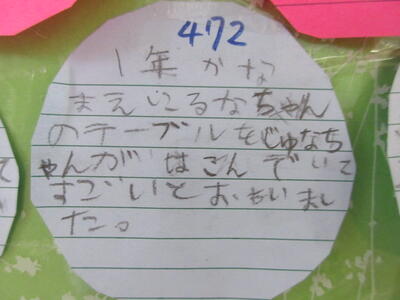 472
1年 かな
まえにるなちゃん
のテーブルをじゅなち
ゃんが はこんでいて
すごいとおもいまし
た。